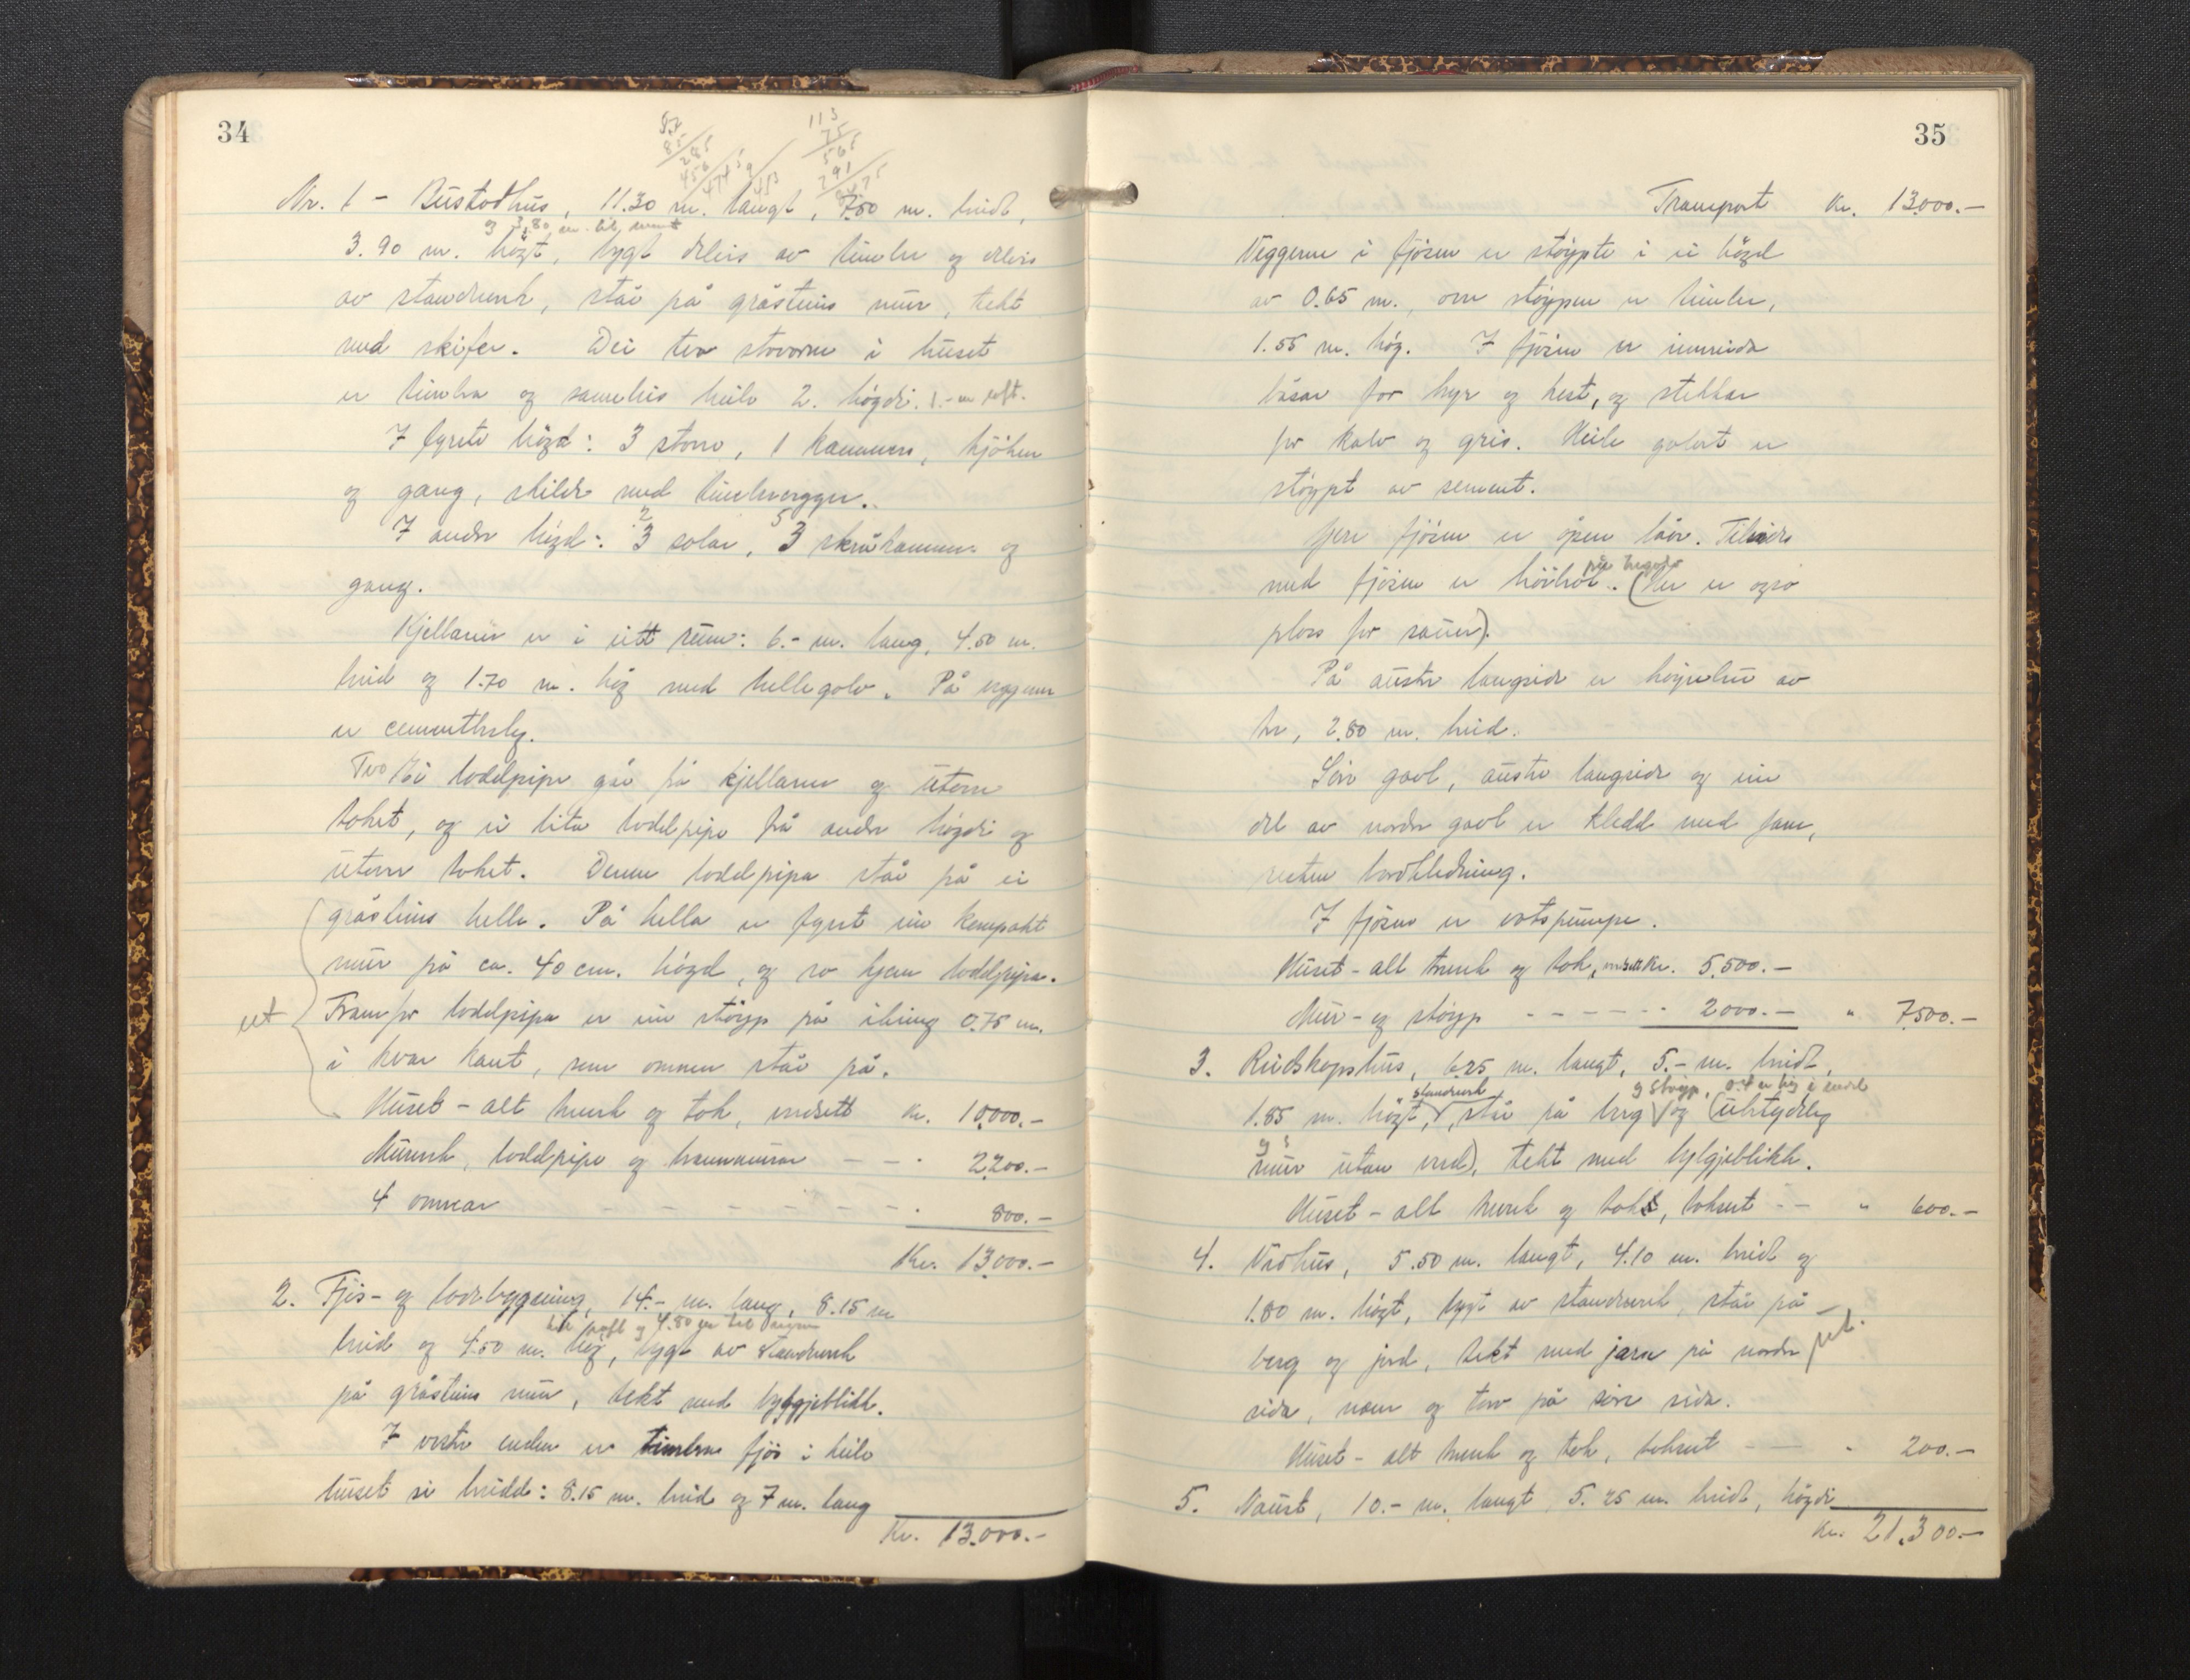 34
Nr. 1 - Bustadhus, 11.30 m. langt, 7.50 m. breidt,
3.90 m. högt, bygt delvis av timber og delvis
av stavverk, står på gråsteins mur, tekt
med skifer. Dei tvo stovorne i huset
er timbra og sameleis heile 2. högdi.
I fyrste högd: 3 stovor, 1 kammers, kjöken
og gang, skilde med timberveggar.
2 5
I andre högd: 3 salar, 3 skråkammer og
gang.
Kjellaren er i eitt rum: 6.- m. lang, 4.50 m.
breid og 1.70 m. hög med hellegolv. På veggene
er cementbelg.
Tvo loddpipe går frå kjellaren og utover
taket, og ei lita loddpipe frå andre högdi og
utover taket. Denne loddpipa står på ei
gråsteins helle. På hella er fyrst ein kompakt
mur på ca. 40 cm. högd, og so kjem loddpipa.
Framfor loddpipa er ein støyp på ikring 0.75 m.
i kvar kant, som omnen står på.
ut
Huset - alt treverk og tak, verdsett Kr. 10.000.-
Murverk, loddpipe og brannmurar - - - 2.200.-
4 omnar - - - - - - - 800.-
Kr. 13.000.-
2. Fjös- og lødebygning, 14.- m. lang, 8.15 m
breid og 4.50 m. hög, bygt av stavverk
på gråsteins mur, tekt med bylgjeblikk.
I vestre enden er timbra fjös i heile
huset si breidd: 8.15 m. breid og 7 m. lang
Kr. 13.000.-
35
Transport Kr. 13.000.-
Veggene i fjösen er støypte i ei högd
av 0.65 m., over støypen er timber,
1.55 m. hög. I fjösen er innreidde
båsar for kyr og hest, og stellar
for kalv og gris. Heile golvet er
støypt av sement.
Yver fjösen er open låve. Tilsides
med fjösen er höihol. (Her er ogso
plass for sauer).
På austre langside er högrebu av
tre, 2.80 m. breid.
Søre gavl, austre langside og ein
del av nordre gavl er kledd med jarn,
resten bordkledning.
I fjösen er vatspumpe.
Huset - alt treverk og tak, verdsett Kr. 5.500.-
Mur- og støyp - - - - - - 2000.- " 7.500.-
3. Reidskapshus, 6.25 m. langt, 5.- m. breidt,
stavverk og støyp, 0.4 m hög i
1.85 m. högt, står på berg og (ubetydeleg
mur utan verd), tekt med bylgjeblikk.
Huset - alt treverk og tak, taksert - - " 600.-
4. Vedhus, 5.50 m. langt, 4.10 m. breidt og
1.80 m. högt, bygt av stavverk, står på
berg og jord, tekt med jarn på nordre
ut.
sida, næver og torv på søre sida.
Huset - alt treverk og tak, taksert - - " 200.-
5. Naust, 10.- m. langt, 5.25 m. breidt, högdi
Kr. 21.300.-